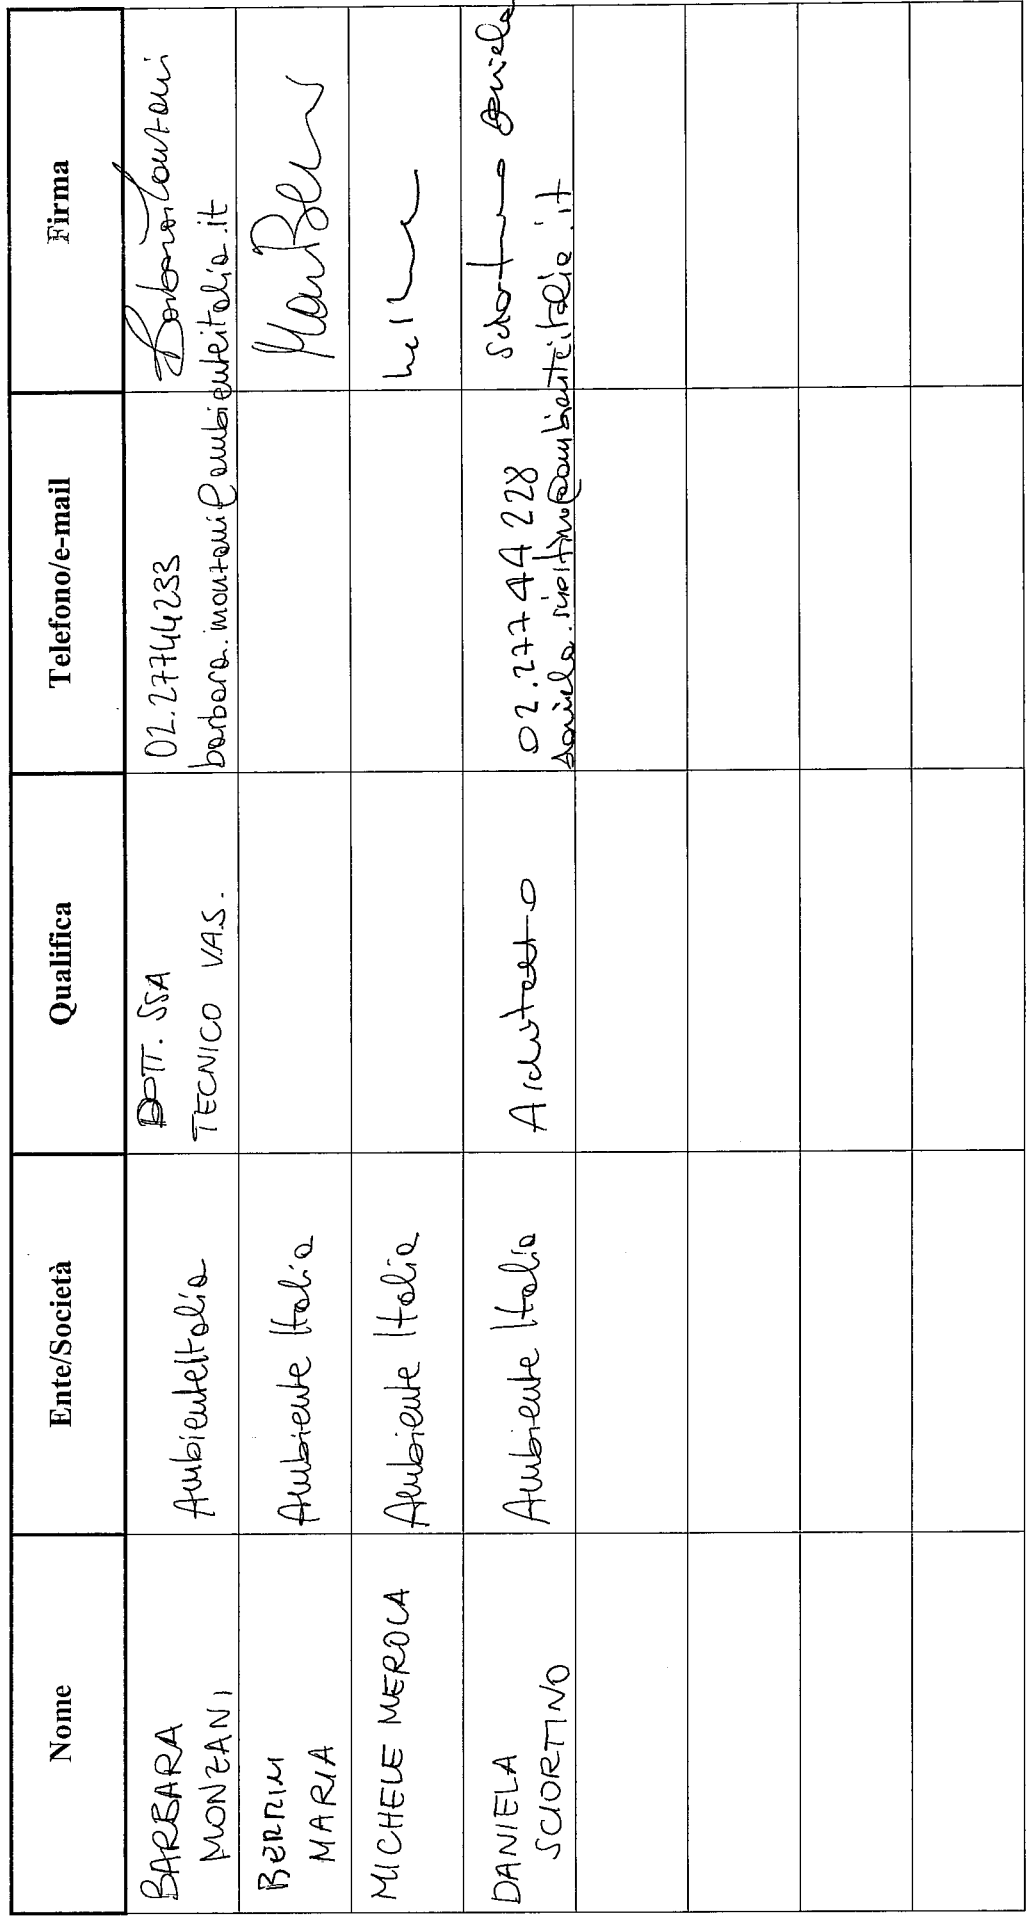 Nome Ente/Società Qualifica Telefono/e-mail Firma
BARBARA MONZANI
AmbienteItalia
DOTT. SSA
TECNICO V.A.S.
02.27744233
barbara.monzani@ambienteitalia.it
Barbara Monzani
BERRINI MARIA
Ambiente Italia
MICHELE MEROLA
Ambiente Italia
DANIELA SCIORTINO
Ambiente Italia
Architetto
02.27744228
daniela.sciortino@ambienteitalia.it
Sciortino Daniela